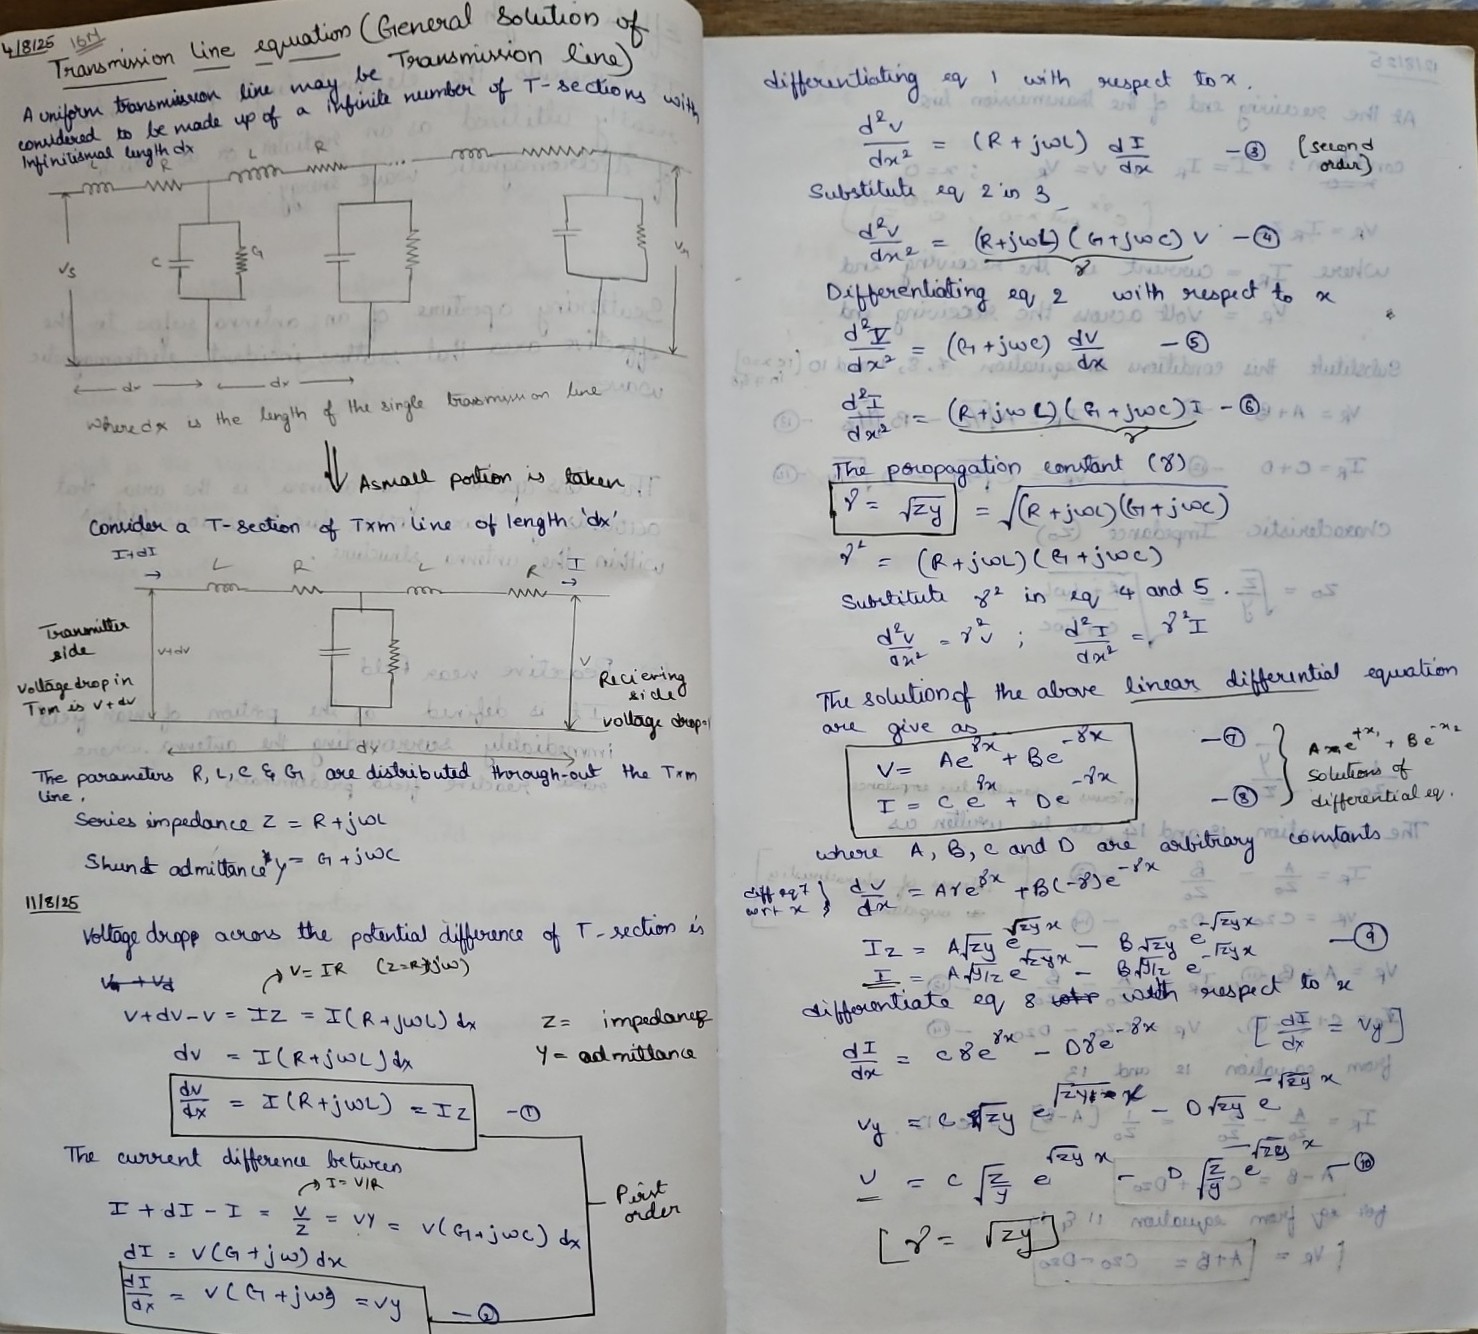 4/8/25
Transmission line equation (General Solution of
Transmission line)
A uniform transmission line may be
considered to be made up of a infinite number of T-sections with
Infinitismal length dx
L R L R ....
Vs C G
dx dx
where dx is the length of the single trasmission line
⇓ A small portion is taken.
Consider a T-section of Txm line of length 'dx'
I+dI L R L R I
Transmitter
side
voltage drop in
Txm is V+dv
V+dv
V
Reciering
side
voltage drop=
dx
The parameters R, L, C & G are distributed through-out the Txm
line.
Series impedance Z = R+jωL
Shunt admittance y = G+jωC
11/8/25
Voltage dropp across the potential difference of T-section is
→ V=IR
V+dV-V = IZ = I(R+jωL)dx
Z= impedance
dv = I(R+jωL)dx
Y= admittance
dv/dx = I(R+jωL) = IZ -①
The current difference between
→ I=V/R
I+dI-I = V/Z = VY = V(G+jωC)dx
First
order
dI = V(G+jω)dx
dI/dx = V(G+jωC) = Vy -②
differentiating eq 1 with respect to x.
d²v/dx² = (R+jωL) dI/dx -③ (second
order)
Substitute eq 2 in 3
d²v/dx² = (R+jωL)(G+jωC)V -④
γ
Differentiating eq 2 with respect to x
d²V/dx² = (G+jωC) dv/dx -⑤
d²I/dx² = (R+jωL)(G+jωC)I -⑥
γ
The poropagation constant (γ)
γ = √zy = √(R+jωL)(G+jωC)
γ² = (R+jωL)(G+jωC)
Substitute γ² in eq 4 and 5.
d²v/dx² = γ²v ; d²I/dx² = γ²I
The solution of the above linear differential equation
are give as
V = Ae^γx + Be^-γx -⑦
I = Ce^γx + De^-γx -⑧
solutions of
differential eq.
where A, B, C and D are arbitrary constants
diff eq 7
wrt x
dv/dx = Aγe^γx + B(-γ)e^-γx
Iz = A√zy e^√zy x - B√zy e^-√zy x -⑨
I = A√y/z e^√zy x - B√y/z e^-√zy x
differentiate eq 8 with respect to x
dI/dx = Cγe^γx - Dγe^-γx [dI/dx = Vy]
Vy = C√zy e^√zy x - D√zy e^-√zy x
V = C√z/y e^√zy x - D√z/y e^-√zy x -⑩
[γ = √zy]